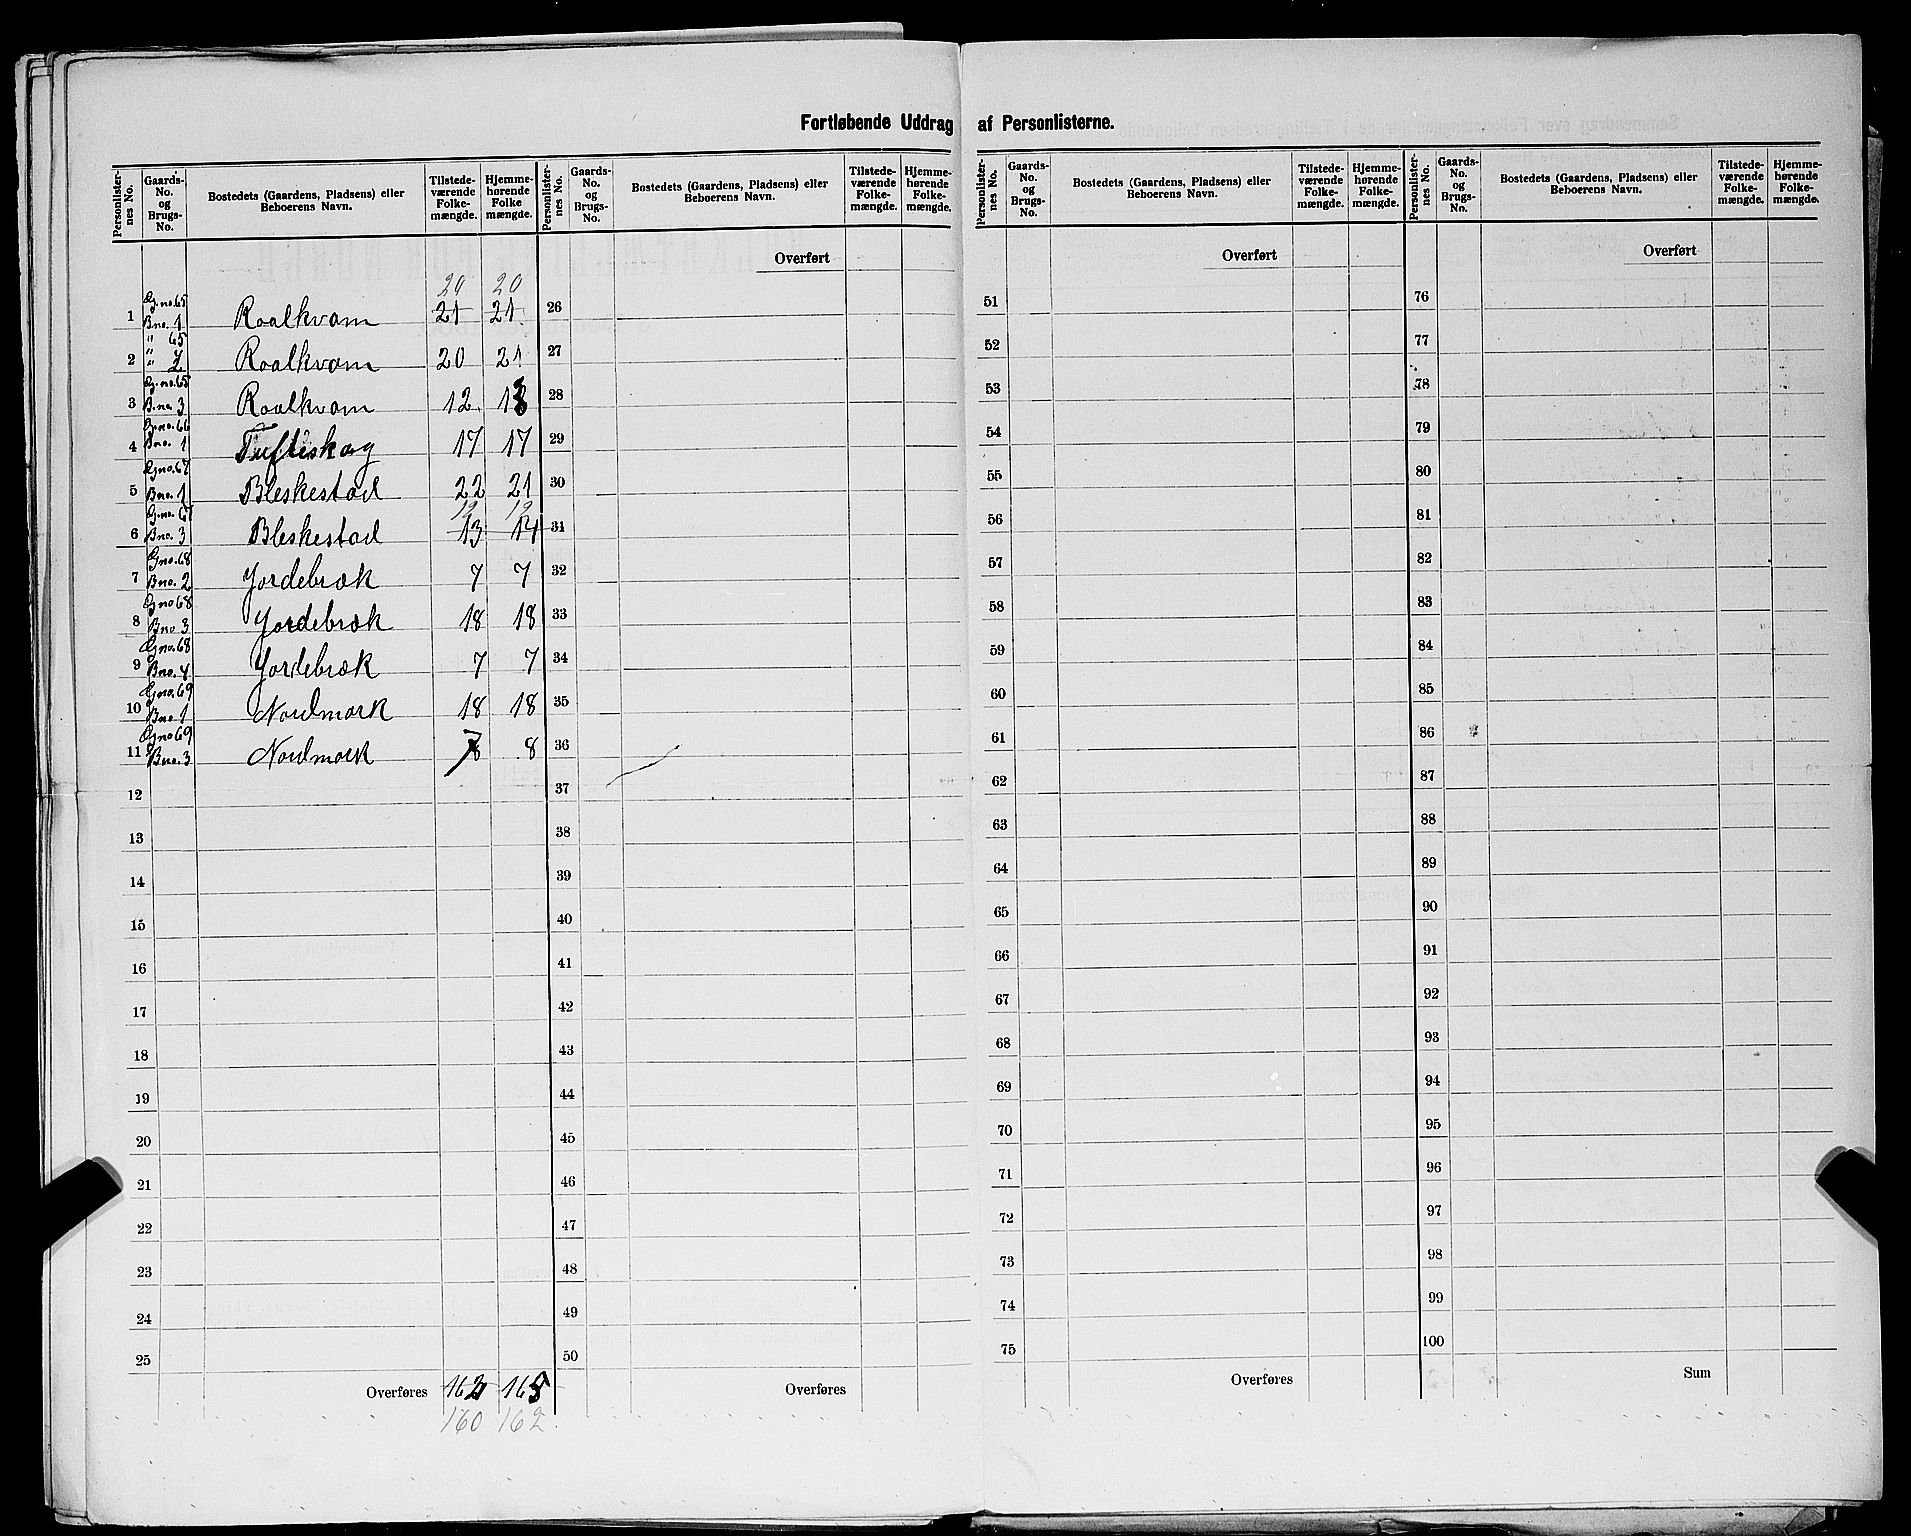 Fortløbende Uddrag af Personlisterne.
Personlister-nes No. | Gaards-No. og Brugs-No. | Bostedets (Gaardens, Pladsens) eller Beboerens Navn. | Tilstede-værende Folke-mængde. | Hjemme-hørende Folke mængde.
Personlister-nes No. | Gaards-No. og Brugs-No. | Bostedets (Gaardens, Pladsens) eller Beboerens Navn. | Tilstede-værende Folke-mængde. | Hjemme-hørende Folke-mængde.
Personlister-nes No. | Gaards-No. og Brugs-No. | Bostedets (Gaardens, Pladsens) eller Beboerens Navn. | Tilstede-værende Folke-mængde. | Hjemme-hørende Folke-mængde.
Personlister-nes No. | Gaards-No. og Brugs-No. | Bostedets (Gaardens, Pladsens) eller Beboerens Navn. | Tilstede-værende Folke-mængde. | Hjemme-hørende Folke-mængde.
20 20
1 G.no.65 Bno. 1 Roalkvam 21 21
2 " 65 " " 2 Roalkvam 20 21
3 G.no.65 B.no. 3 Roalkvam 12 13
4 G.no.66 Bno. 1 Tuftiskog 17 17
5 Gno.67 Bno. 1 Bleskestad 22 21
12 12
6 G.no. 67 Bno. 3 Bleskestad 13 14
7 Gno.68 Bno. 2 Jordebræk 7 7
8 Gno68 Bno 3 Jordebræk 18 18
9 Gno.68 Bno. 4 Jordebræk 7 7
10 Gno.69 Bno 1 Nordmork 18 18
11 Gno69 Bno. 3 Nordmork 7 8
12
13
14
15
16
17
18
19
20
21
22
23
24
25
Overføres 162 165
160 162
Overført
26
27
28
29
30
31
32
33
34
35
36
37
38
39
40
41
42
43
44
45
46
47
48
49
50
Overføres
Overført
51
52
53
54
55
56
57
58
59
60
61
62
63
64
65
66
67
68
69
70
71
72
73
74
75
Overføres
Overført
76
77
78
79
80
81
82
83
84
85
86
87
88
89
90
91
92
93
94
95
96
97
98
99
100
Sum